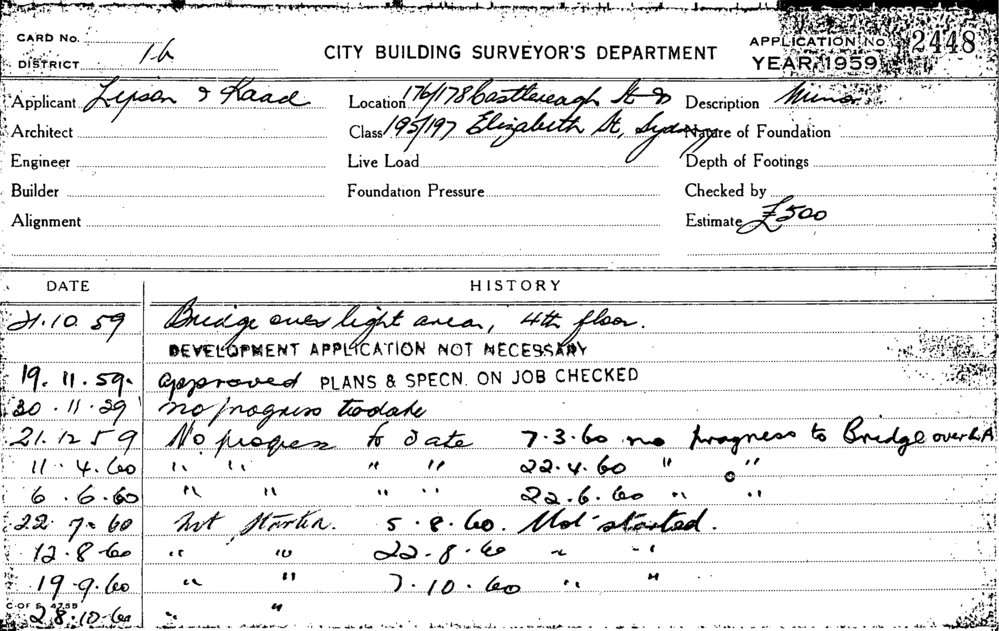 CARD No.
DISTRICT 1b
CITY BUILDING SURVEYOR'S DEPARTMENT
APPLICATION No. 2448
YEAR 1959
Applicant Lipson & Kaad
Location 176/178 Castlereagh St &
Description Minor
Architect
Class 195/197 Elizabeth St, Sydney
Nature of Foundation
Engineer
Live Load
Depth of Footings
Builder
Foundation Pressure
Checked by
Alignment
Estimate £500
DATE HISTORY
21.10.59 Bridge over light area, 4th floor.
DEVELOPMENT APPLICATION NOT NECESSARY
19.11.59. approved PLANS & SPECN. ON JOB CHECKED
30.11.59 no progress to date
21.12.59 No progress to date 7.3.60 no progress to Bridge over L.A
11.4.60 " " " " 22.4.60 " "
6.6.60 " " " " 22.6.60 " "
22.7.60 Not started. 5.8.60. Not started.
12.8.60 " " 22.8.60 " "
19.9.60 " " 7.10.60 " "
28.10.60 " "